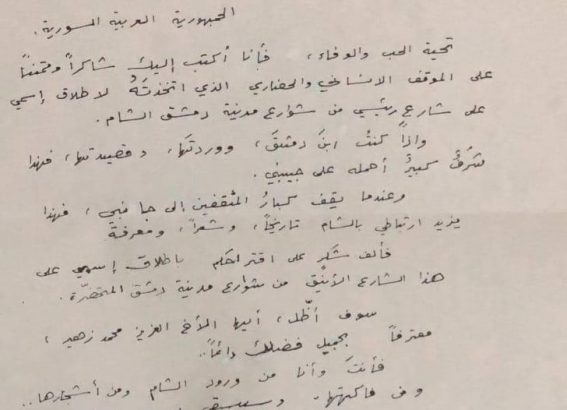 الجمهورية العربية السورية.
تحية الحب والوفاء، فأنا أكتب إليك شاكراً وممتناً
على الموقف الانساني والحضاري الذي اتخذتَهُ لاطلاق إسمي
على شارع رئيسي من شوارع مدينة دمشق الشام.
واذا كنتُ ابنَ دمشقَ، ووردتَها، وقصيدتها، فهذا
شَرَفٌ كبيرٌ أحمله على جبيني.
وعندما يقف كبارُ المثقفين إلى جانبي، فهذا
يزيد ارتباطي بالشام تاريخاً، وشعراً، ومعرفة
فألف شكر على اقتراحكم باطلاق إسمي على
هذا الشارع الأنيق من شوارع مدينة دمشق المتحضرة.
سوف أظل، أيها الأخ العزيز محمد زهير،
معترفاً بجميل فضلك دائماً..
فأنتَ وأنا من ورود الشام ومن أشجارها..
ومن فاكهتها.